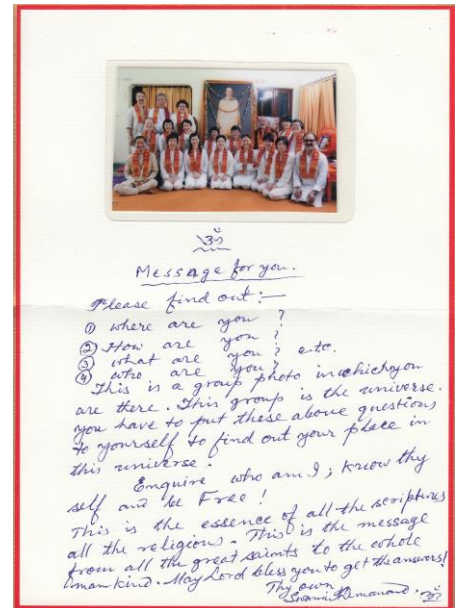 ॐ
Message for you.
Please find out:—
① where are you?
② How are you?
③ what are you? etc.
④ who are you?
This is a group photo in which you
are there. This group is the universe.
you have to put these above questions
to yourself to find out your place in
this universe.
Enquire who am I; know thy
self and be Free!
This is the essence of all the scriptures
all the religions. This is the message
from all the great saints to the whole
mankind. May Lord bless you to get the answers!
Thy own
Swami ॐ